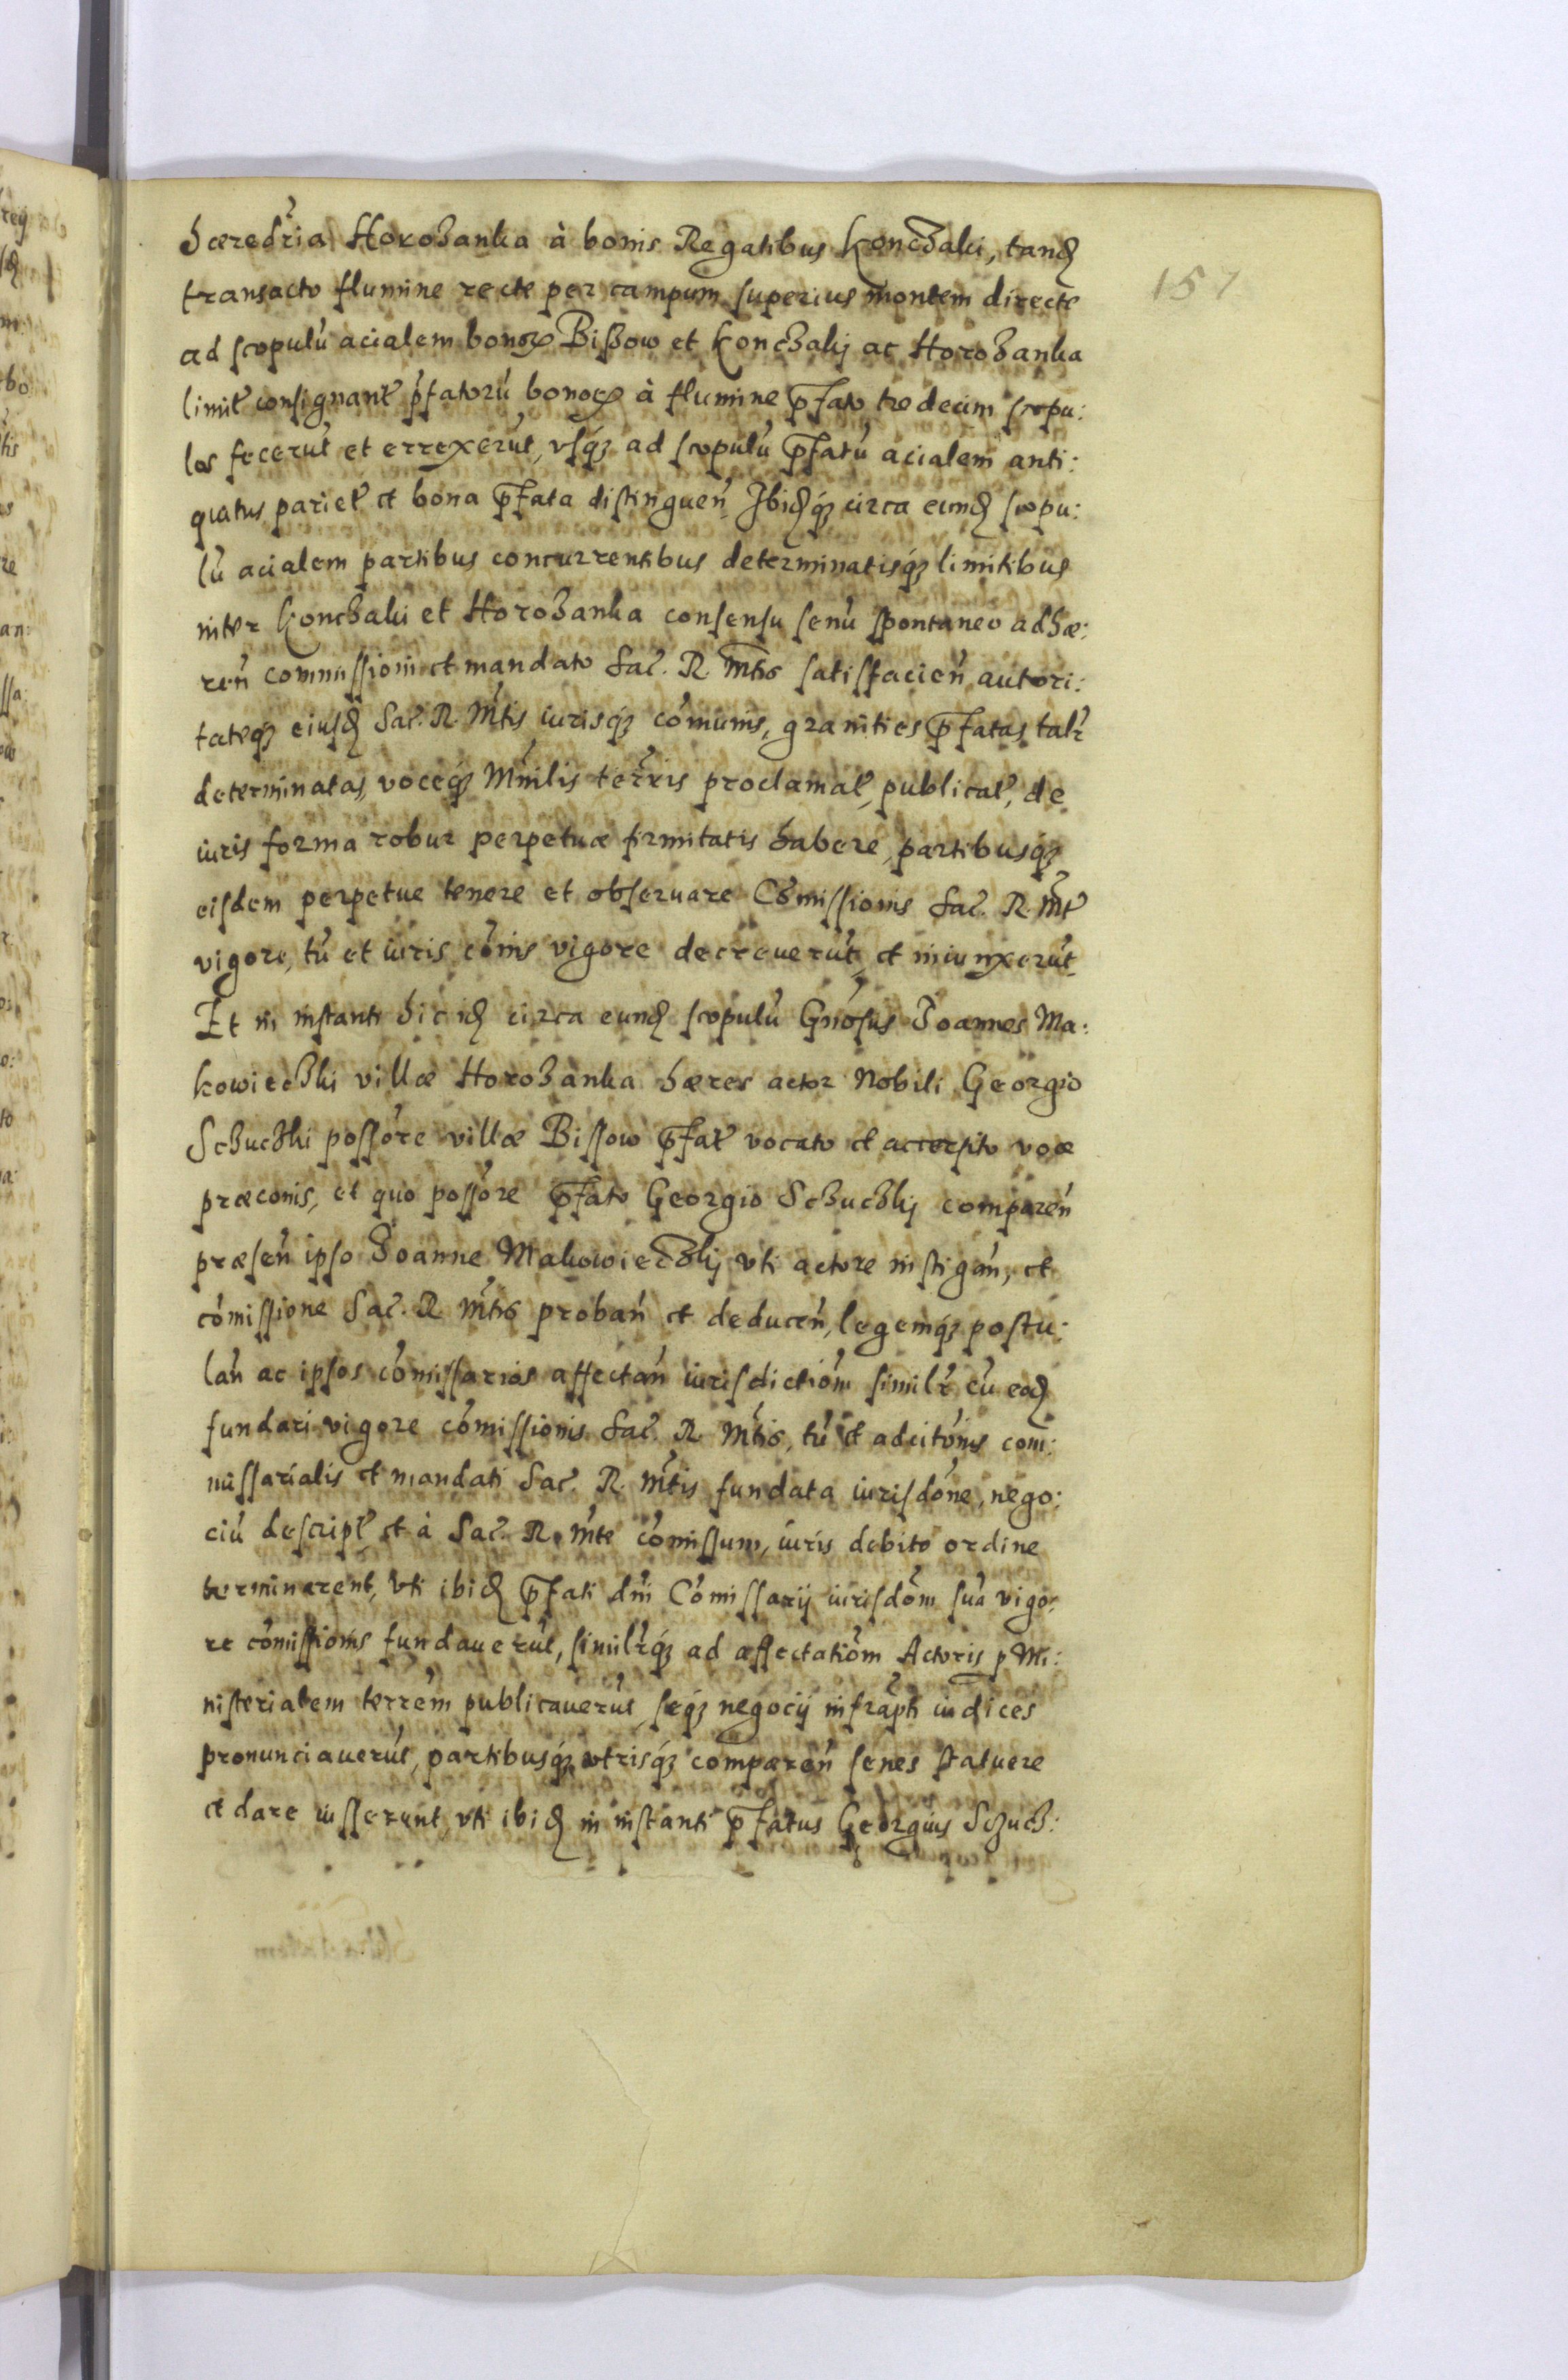 157
hæredr̃ia Horożanka à bonis Regalibus Konczaki, tanđ
transacto flumine recte per campum superius montem directe
ad scopulũ acialem bonoꝝ Bißow et Konczakj ac Horożanka
limit̃ consignant̃ p̃fatorũ bonoꝝ à flumine p̃fato tredecim scopu:
los fecerũt et errexerũt, vsq́ꝫ ad scopulũ p̃fatũ acialem anti:
quatus pariet̃ et bona p̃fata distinguen̄ Ibiđq́ꝫ circa eunđ scopu:
lũ acialem partibus concurrentibus determinatisq́ꝫ limitibus
inter Konczaki et Horożanka consensu senũ spontaneo adhæ:
ren̄ commissioni et mandato Sac̃. R. Mt̃is satisfacien̄ autori:
tateq́ꝫ eiusđ Sac̃. R. Mt̃is iurisq́ꝫ cõmunis, granities p̃fatas talr̃
determinatas, voceq́ꝫ Mñilis ter̃ris proclamat̃, publicat̃, de
iuris forma robur perpetuæ firmitatis habere, partibusq́ꝫ
eisdem perpetue tenere et obseruare Cõmissionis Sac̃. R. Mt̃
vigore, tũ et iuris cõnis vigore decreuerũt, et iniunxerũt
Et in instanti hic iđ circa eunđ scopulũ Gñosus Joannes Ma:
kowieczki villæ Horożanka hæres actor Nobili Georgio
Sczuczki posßore villæ Bissow p̃fat̃ vocato et accersito voce
præconis, et quo possõre p̃fato Georgio Sczuczkj comparen̄
præsen̄ ipso Joanne Makowieczkj vti actore instigan̄, et
cõmissione Sac̃. R Mt̃is proban̄ et deducen̄, legemq́ꝫ postu:
lan̄ ac ipsos cõmissarios affectan̄ iurisdictiõm similr̃ cũ eođ
fundari vigore cõmissionis Sac̃. R. Mt̃is, tũ et adcitõnis com:
missarialis et mandati Sac̃. R. Mt̃is fundata iurisdõne, nego:
ciũ descript̃ et à Sac̃. R. Mt̃e cõmissum, iuris debito ordine
terminarent, vti ibiđ p̃fati dñi Cõmissarij iurisdõm suã vigo:
re cõmissionis fundauerũt, similr̃q́ꝫ ad affectatiõm Actoris p Mi:
nisterialem terrẽm publicauerũt, seq́ꝫ negocij infrap̃ti iudices
pronunciauerũt, partibusq́ꝫ vtrisq́ꝫ comparen̄ senes statuere
et dare iusserunt, vti ibiđ in instanti p̃fatus Georgius Sczucz: